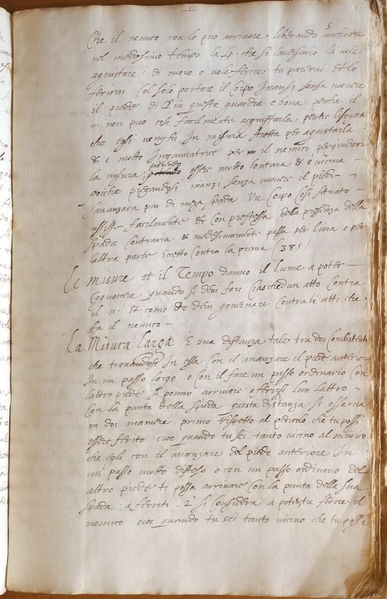 Che il nemico non lo può arrivare liberando
nel medesimo tempo la
acquistare di nuovo e
ferirai Col Solo portare il Corpo inanzi senza movere
il piede di Più questa guardia e bona perche il
n non può così facilmente acquistarla perche bisogna
che egli venghi in misura stretta per acquistarla
& è molto Ingannatrice per il nemico
la misura parendo essere molto lontana & è vicina
poiche piegandosi inanzi senza movere il piede
s'avanzara più di meza spada Un Corpo Così
facilmente & Con prestezza della presenza della
spada Contraria & medesimamente passa per linea o per
altra parte Contro la prima (385
Le misure et il Tempo danno il lume a poter
Cognoscere quando si deve fare Ciascheduno atto Contra
il n. Et Como si deve governare Contra li atti che
fa il nemico
La Misura larga E una distanza tale tra doi Combattenti
che trovandosi In essa con il avanzare il piede anteriore
In un passo largo o con il fare un passo ordinario con
laltro piede si ponno arrivare e ferirsi lun laltro
Con la punta della spada questa distanza si osserva
in doi maniere primo rispetto al pericolo che tu possi
essere ferito cioe quando tu sei tanto vicino al nimico
che egli con il avanzare del piede anteriore In
un passo molto disteso o con un passo ordinario del
altro piede ti possa arrivare con la punta della sua
spada e ferirti. 2° si considera a potestu ferire il
nemico cioe quando tu sei tanto vicino che tu possi